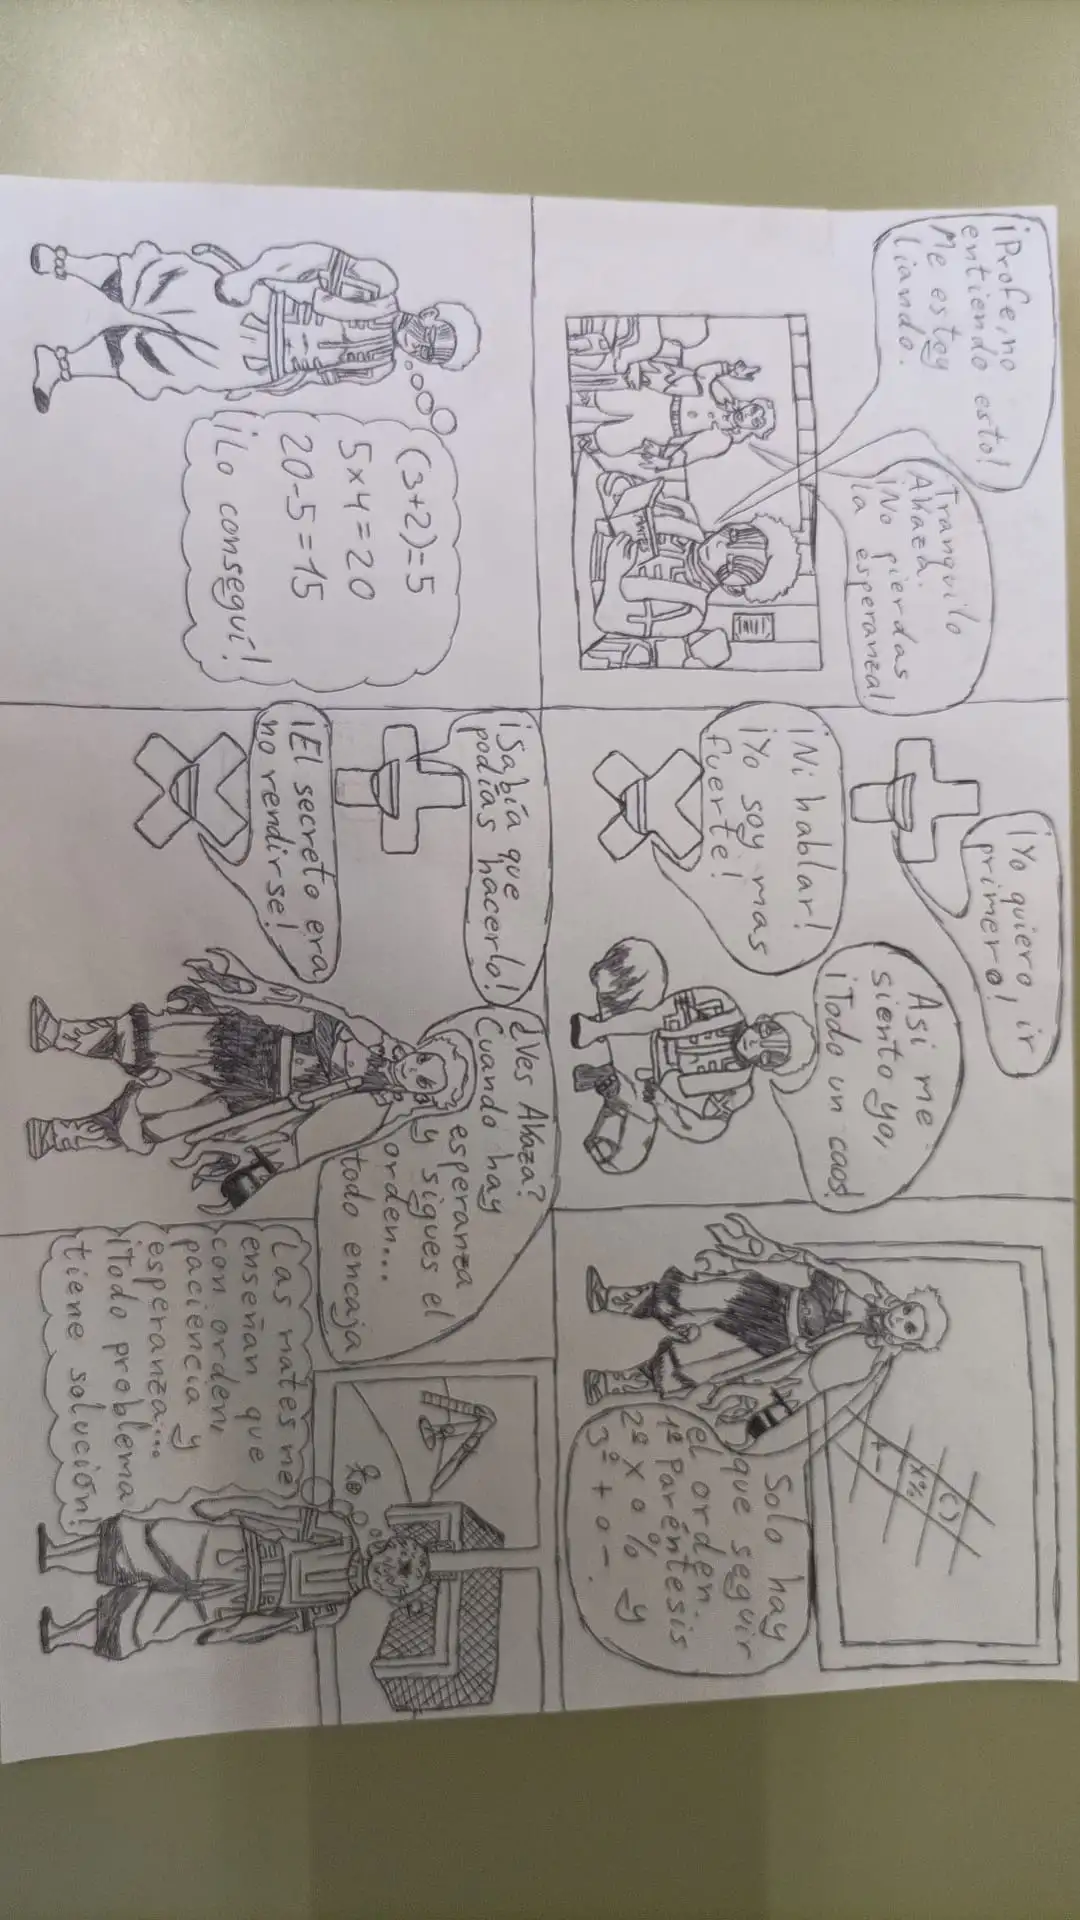 ¡Profe, no
entiendo esto!
Me estoy
liando.
Tranquilo
Akaza.
¡No pierdas
la esperanza!
MATES
¡Yo quiero ir
primero!
¡Ni hablar!
¡Yo soy mas
fuerte!
Asi me
siento yo,
¡Todo un caos!
( )
x %
+ -
Solo hay
que seguir
el orden.
1º Paréntesis
2º x o % y
3º + o -.
(3+2)=5
5x4=20
20-5=15
¡Lo conseguí!
¡Sabía que
podías hacerlo!
¡El secreto era
no rendirse!
¿Ves Akaza?
Cuando hay
esperanza
y sigues el
orden...
todo encaja
Las mates me
enseñan que
con orden,
paciencia y
esperanza...
¡Todo problema
tiene solución!